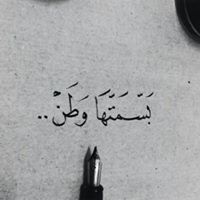 بَسْمَتُهَا وَطَنْ..